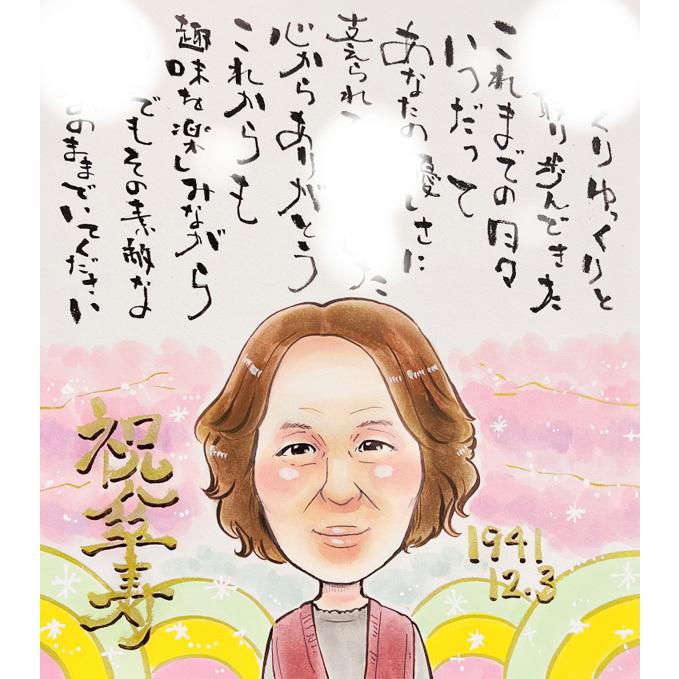 くりゆっくりと
取り歩んできた
これまでの日々
いつだって
あなたの優しさに
支えられて した
心からありがとう
これからも
趣味を楽しみながら
でもその素敵な
のままでいてください
祝傘寿
1941
12.3